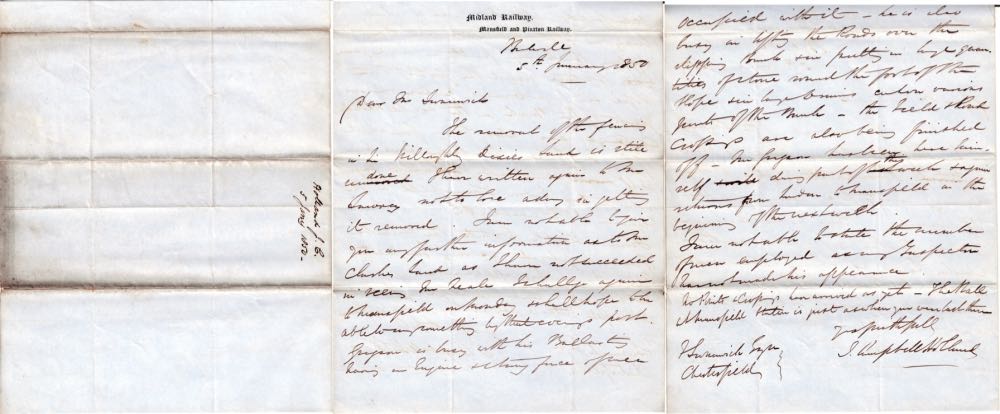 Holland J. C.
5 Jany 1850 -
Midland Railway.
Mansfield and Pinxton Railway.
5th January 1850
Dear Mr Swanwick
The removal of the fencing
in Land is still
done I have written again to Mr
not to lose a day in getting
it removed. I am not able to give
you any further information as to the
land as I have not succeeded
in seeing Mr I shall go again
to Mansfield on Monday & shall hope to be
able to say something by that evening's post.
Grayson is busy with his Ballasting
having an Engine & strong force of men
occupied with it - he is also
busy in lifting the Roads over the
slipping Bank & in putting in large quan-
tities of stone round the foot of the
slope & in large in various
parts of the Bank - the Field & Road
Crossings are also being finished
off - Mr Grayson has been here him-
self during part of the week & again
returns from to Mansfield in the
beginning of the next week.
I am not able to state the number
of men employed as my Inspector
has not made his appearance.
No Points & Crossings have arrived as yet - The
Mansfield Station is just as when you were last there
Yrs faithfully
J. Campbell Holland
F Swanwick Esqre
Chesterfield